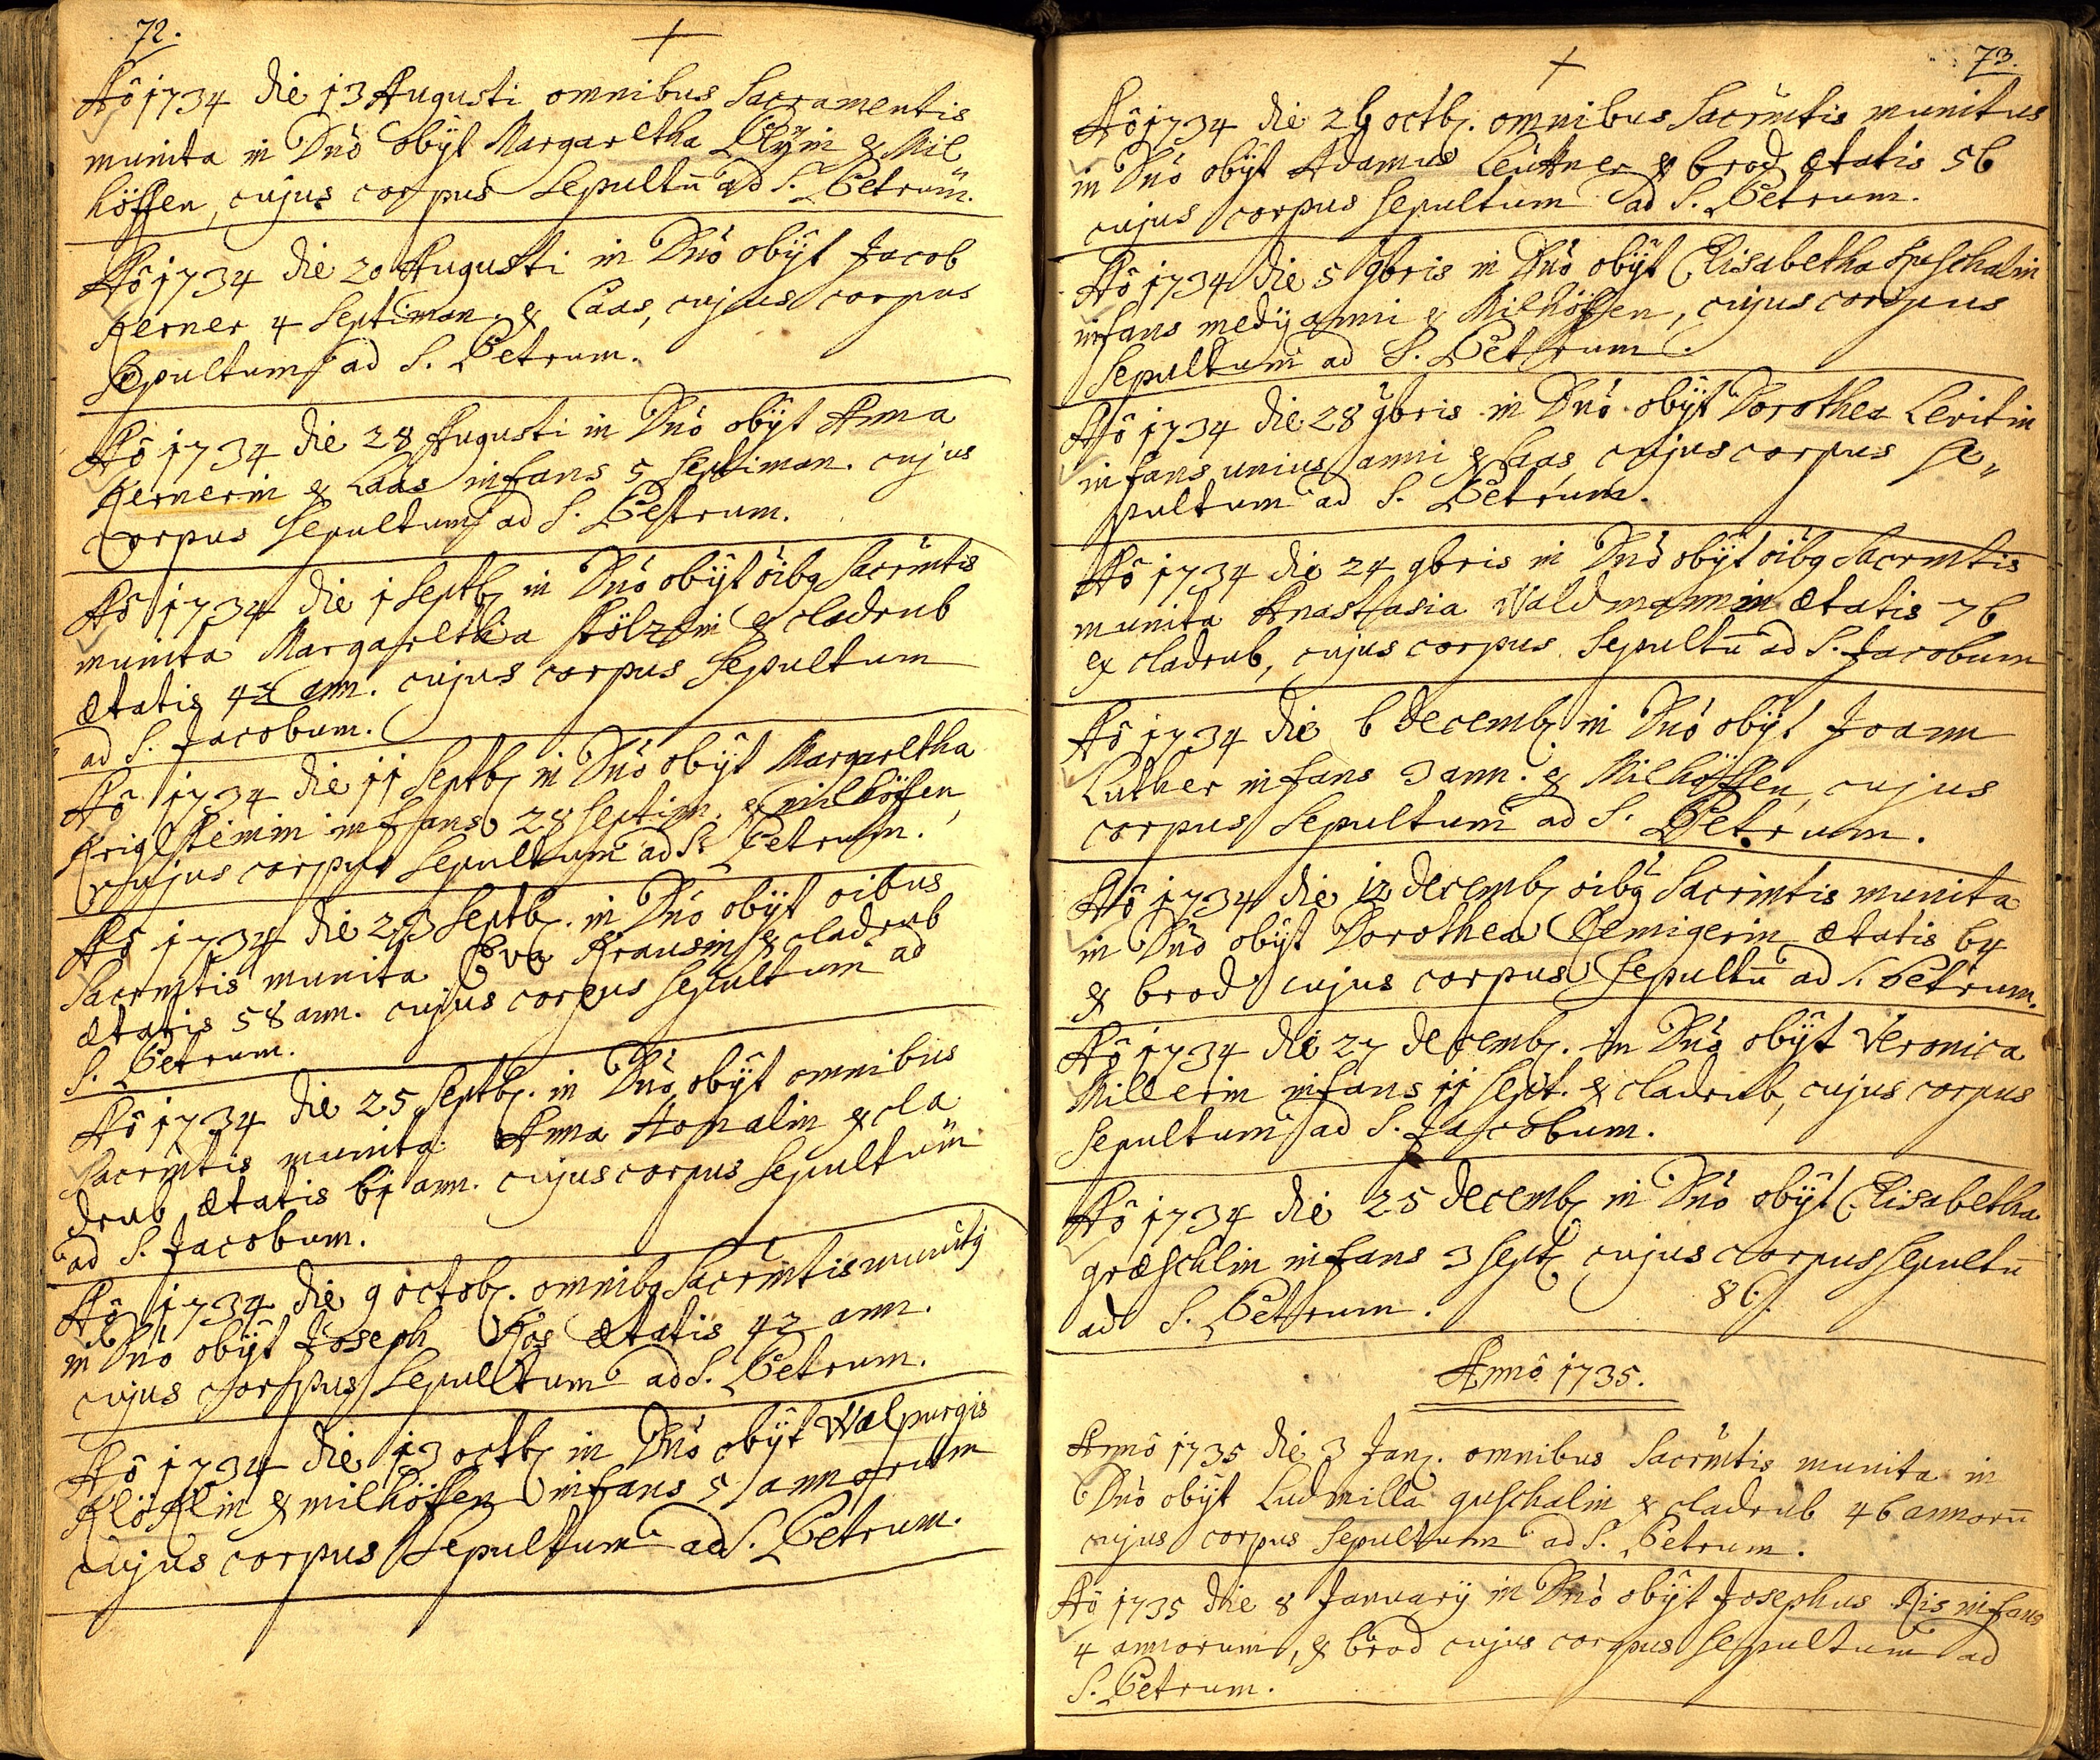 72.
Aô 1734 die 13 Augusti omnibus Sacramentis
munita in Dnô obÿt Margaretha ex Mil
höffen, cujus corpus sepultū ad S. Petrum.
Aô 1734 die 20 Augusti in Dnô obÿt Jacob
Kerner 4 septiman. ex Caas, cujus corpus
Sepultum ad S. Petrum.
Aô 1734 die 28 Augusti in Dnô obÿt Anna
Kernerin ex Caas infans 5 septiman. cujus
corpus sepultum ad S. Petrum.
Aô 1734 die 1 Septb. in Dnô obÿt oibq Sacrmtis
munita Margaretha ex cladrub
ætatis 42 ann. cujus corpus sepultum
ad S. Jacobum.
Aô 1734 die 11 Septb. in Dnô obÿt Margaretha
infans 28 septim. ex milhöffen,
cujus corpus sepultum ad S. Petrum.
Aô 1734 die 23 Septb. in Dnô obÿt oibus
Sacrmtis munita Eva Krausin ex cladrub
ætatis 58 ann. cujus corpus sepultum ad
S. Petrum.
Aô 1734 die 25 Septb. in Dnô obÿt omnibus
Sacrmtis munita Anna ex cla
drub ætatis 61 ann. cujus corpus sepultum
ad S. Jacobum.
Aô 1734 die 9 octob. omnibq Sacrmtis munitq
in Dnô obÿt Joseph ætatis 42 ann.
cujus corpus sepultum ad S. Petrum.
Aô 1734 die 13 octb. in Dnô obÿt Walpurgis
ex milhöffen infans 5 annorum
cujus corpus sepultum ad S. Petrum.
73.
Aô 1734 die 26 octb. omnibus Sacrmtis munitus
in Dnô obÿt Adamus Leuttner ex brod ætatis 56
cujus corpus sepultum ad S. Petrum.
Aô 1734 die 5 9bris in Dnô obÿt Elisabetha
infans medÿ anni ex Milhöffen, cujus corpus
sepultum ad S. Petrum.
Aô 1734 die 28 9bris in Dnô obÿt Dorothea Levitin
infans unius anni ex Caas cujus corpus se„
pultum ad S. Petrum.
Aô 1734 die 24 9bris in Dnô obÿt oibq Sacrmtis
munita Anastasia Waldmannin ætatis 76
ex cladrub, cujus corpus sepultū ad S. Jacobum
Aô 1734 die 6 decemb. in Dnô obÿt Joann
Luther infans 3 ann. ex Milhöffen, cujus
corpus sepultum ad S. Petrum.
Aô 1734 die 12 decemb. oibq Sacrmtis munita
in Dnô obÿt Dorothea ætatis 64
ex brod cujus corpus sepultū ad S. Petrum.
Aô 1734 die 27 decemb. in Dnô obÿt Veronica
Millerin infans 11 sept. ex cladrub, cujus corpus
sepultum ad S. Jacobum.
Aô 1734 die 25 decemb. in Dnô obÿt Elisabetha
græschlin infans 3 sept. cujus corpus sepultū
ad S. Petrum. 86.
Annô 1735.
Annô 1735 die 3 Jan. omnibus Sacrmtis munita in
Dnô obÿt Ludmilla guschalin ex cladrub 46 annorū
cujus corpus sepultum ad S. Petrum.
Aô 1735 die 8 Januarÿ in Dnô obÿt Josephus Ris infans
4 annorum, ex brod cujus corpus sepultum ad
S. Petrum.